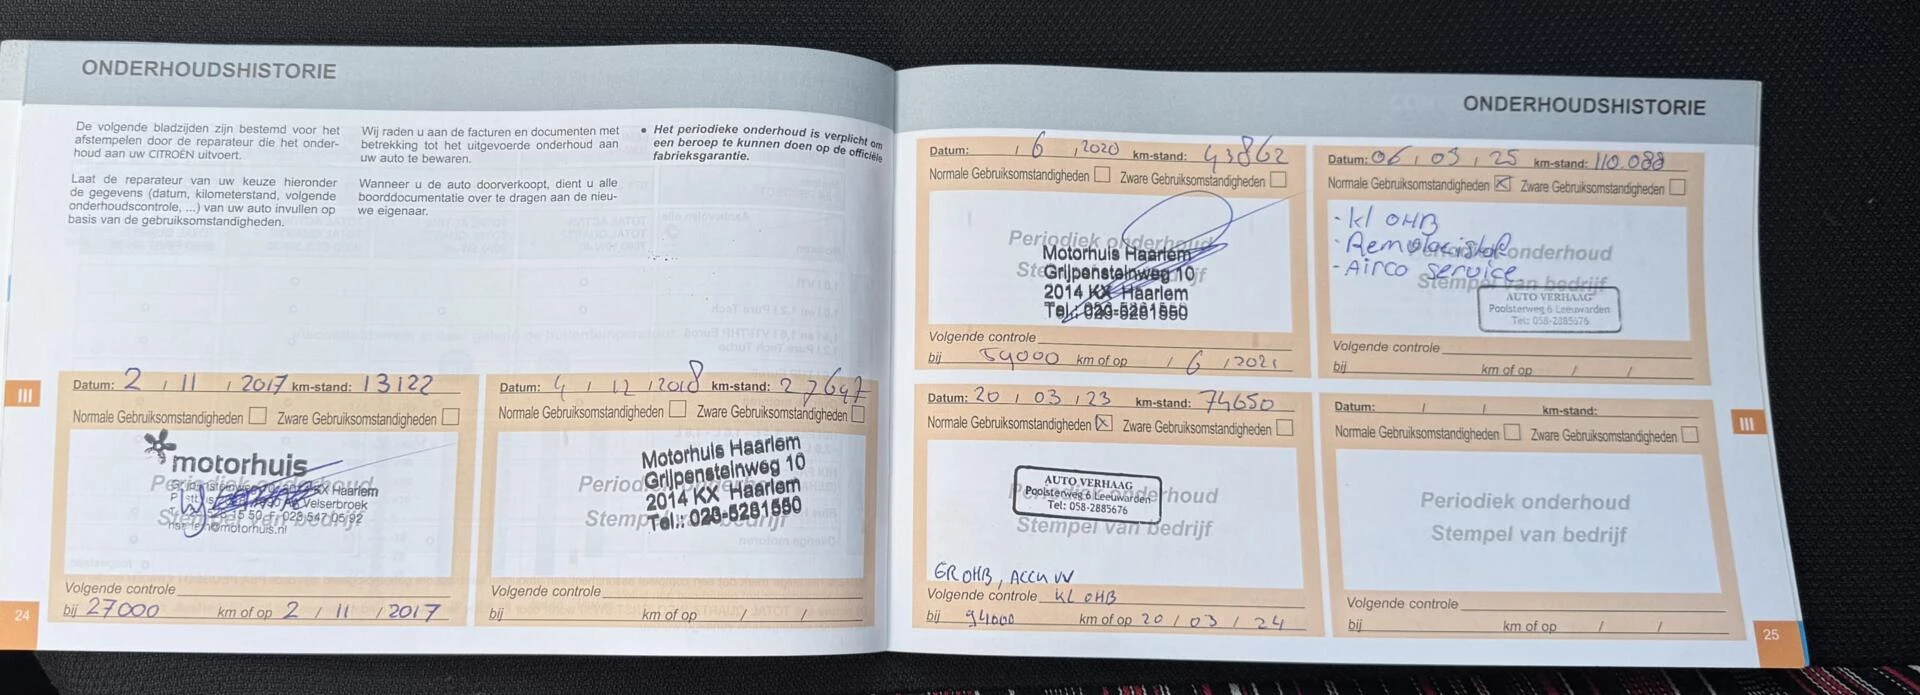 ONDERHOUDSHISTORIE
De volgende bladzijden zijn bestemd voor het
afstempelen door de reparateur die het onder-
houd aan uw CITROËN uitvoert.
Laat de reparateur van uw keuze hieronder
de gegevens (datum, kilometerstand, volgende
onderhoudscontrole, ...) van uw auto invullen op
basis van de gebruiksomstandigheden.
Wij raden u aan de facturen en documenten met
betrekking tot het uitgevoerde onderhoud aan
uw auto te bewaren.
Wanneer u de auto doorverkoopt, dient u alle
boorddocumentatie over te dragen aan de nieu-
we eigenaar.
• Het periodieke onderhoud is verplicht om
een beroep te kunnen doen op de officiële
fabrieksgarantie.
III
Datum: 2 / 11 / 2017 km-stand: 13122
Normale Gebruiksomstandigheden Zware Gebruiksomstandigheden
motorhuis
Periodiek onderhoud
KX Haarlem
Velserbroek
Stempel van bedrijf
@motorhuis.nl
Volgende controle
bij 27000 km of op 2 / 11 / 2017
Datum: 4 / 12 / 2018 km-stand: 27647
Normale Gebruiksomstandigheden Zware Gebruiksomstandigheden
Periodiek onderhoud
Stempel van bedrijf
Motorhuis Haarlem
Grijpensteinweg 10
2014 KX Haarlem
Tel.: 023-5281550
Volgende controle
bij km of op / /
24
ONDERHOUDSHISTORIE
Datum: , 6 , 2020 km-stand: 43862
Normale Gebruiksomstandigheden Zware Gebruiksomstandigheden
Periodiek onderhoud
Stempel van bedrijf
Motorhuis Haarlem
Grijpensteinweg 10
2014 KX Haarlem
Tel.: 023-5281550
Volgende controle
bij 59000 km of op / 6 / 2021
Datum: 06 / 03 / 25 km-stand: 110.088
Normale Gebruiksomstandigheden Zware Gebruiksomstandigheden
- kl OHB
- Remvloeistof
- Airco service
Periodiek onderhoud
Stempel van bedrijf
AUTO VERHAAG
Poolsterweg 6 Leeuwarden
Tel: 058-2885676
Volgende controle
bij km of op / /
Datum: 20 / 03 / 23 km-stand: 74650
Normale Gebruiksomstandigheden Zware Gebruiksomstandigheden
AUTO VERHAAG
Poolsterweg 6 Leeuwarden
Tel: 058-2885676
Periodiek onderhoud
Stempel van bedrijf
GR OHB, ACCU VV
Volgende controle KL OHB
bij 94000 km of op 20 / 03 / 24
Datum: / / km-stand:
Normale Gebruiksomstandigheden Zware Gebruiksomstandigheden
Periodiek onderhoud
Stempel van bedrijf
Volgende controle
bij km of op / /
III
25